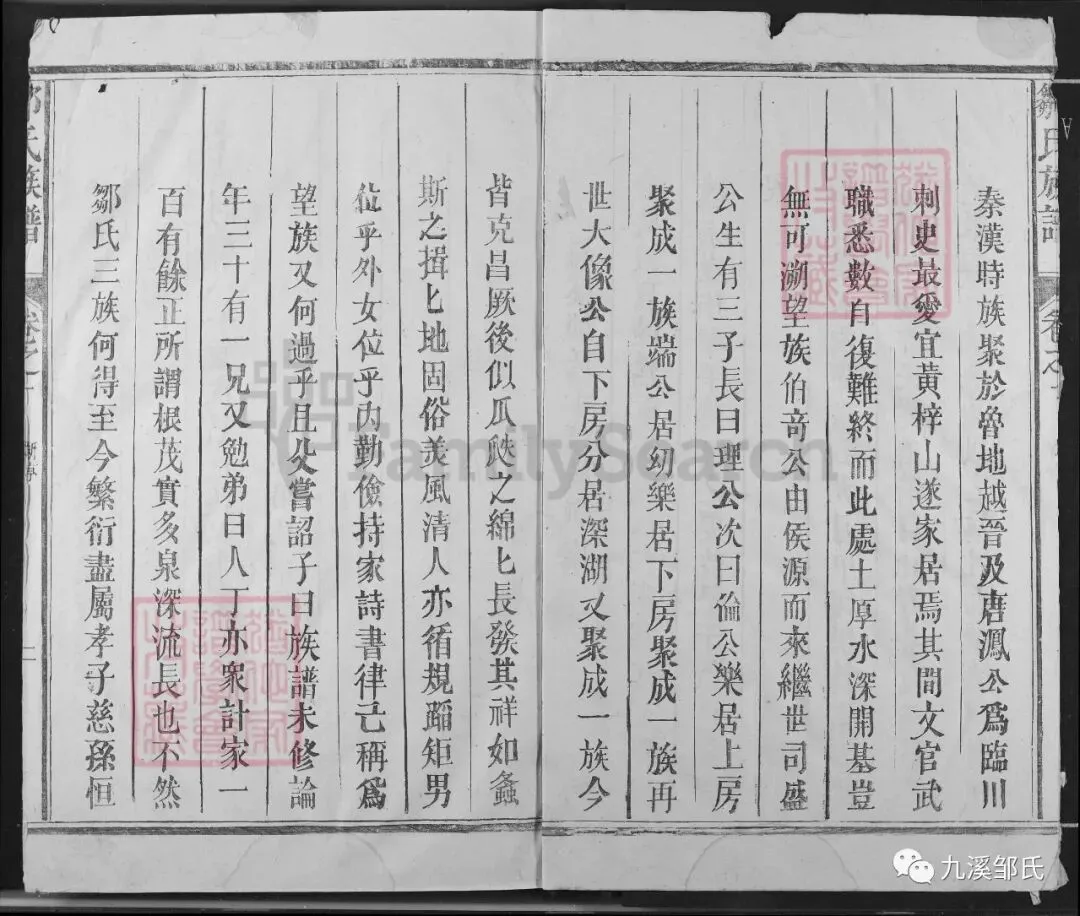 鄒氏族譜
秦漢時族聚於魯地越晉及唐鳳公爲臨川
刺史最愛宜黃梓山遂家居焉其間文官武
職悉數自復難終而此處土厚水深開基豈
無可溯望族伯奇公由侯源而來繼世司盛
公生有三子長曰理公次曰倫公樂居上房
聚成一族端公居幼樂居下房聚成一族再
世大像公自下房分居深湖又聚成一族今
皆克昌厥後似瓜瓞之綿匕長發其祥如螽
斯之揖匕地固俗美風清人亦循規蹈矩男
位乎外女位乎內勤儉持家詩書律己稱爲
望族又何過乎且父嘗詔子曰族譜未修論
年三十有一兄又勉弟曰人丁亦衆計家一
百有餘正所謂根茂實多泉深流長也不然
鄒氏三族何得至今繁衍盡屬孝子慈孫恒
鄒氏族譜
卷之
二
FamilySearch
九溪邹氏